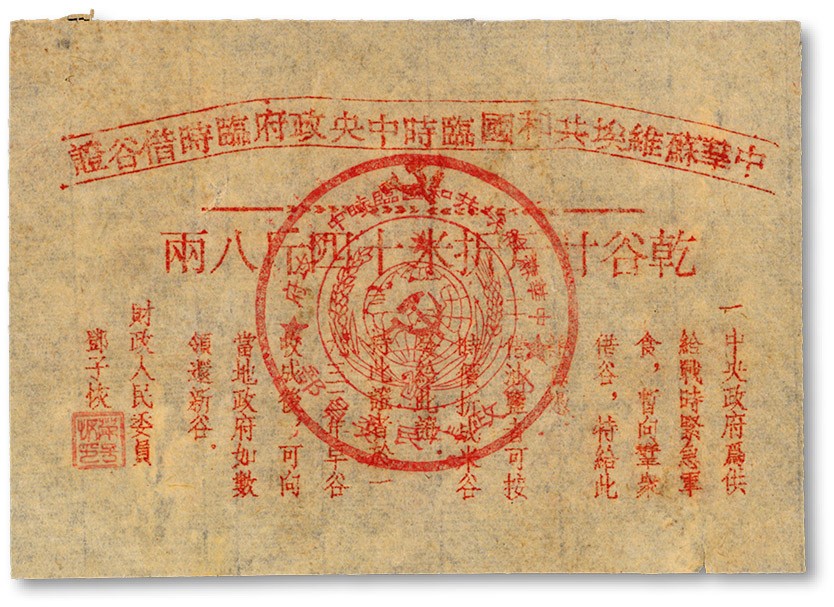 中華蘇維埃共和國臨時中央政府臨時借谷證
乾谷廿 折米十四斤八兩
一、中央政府爲供
給戰時緊急軍
食，暫向羣衆
借谷，特給此
借油鹽者可按
時價折成米谷
發給此證
持此證者於一
三四年早谷
收成後，可向
當地政府如數
領還新谷。
財政人民委員
鄧子恢